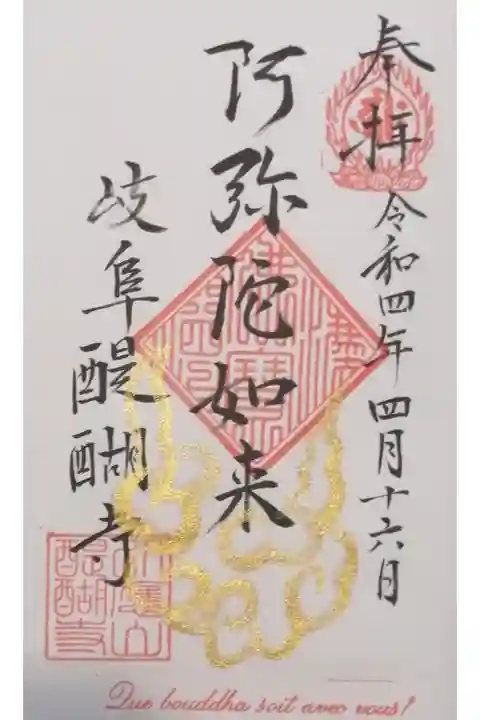 奉拝
令和四年四月十六日
阿弥陀如来
岐阜醍醐寺
醍醐寺
Que bouddha soit avec vous!